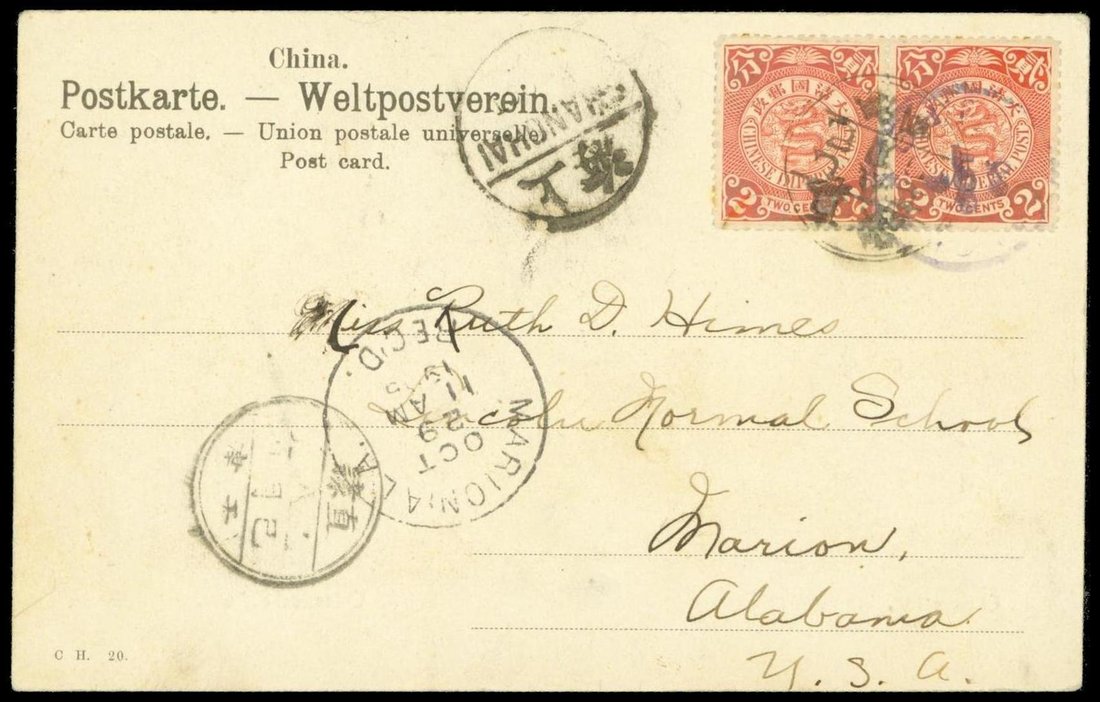 China.
Postkarte. — Weltpostverein.
Carte postale. — Union postale universelle.
Post card.
SHANGHAI
上海
分 貳
大清國郵政
CHINESE IMPERIAL POST
2 TWO CENTS 2
分 貳
大清國郵政
CHINESE IMPERIAL POST
2 TWO CENTS 2
Miss Ruth D. Himes
Lincoln Normal School
Marion,
Alabama
U. S. A.
MARION, ALA.
OCT
29
11 AM
REC'D.
C H. 20.